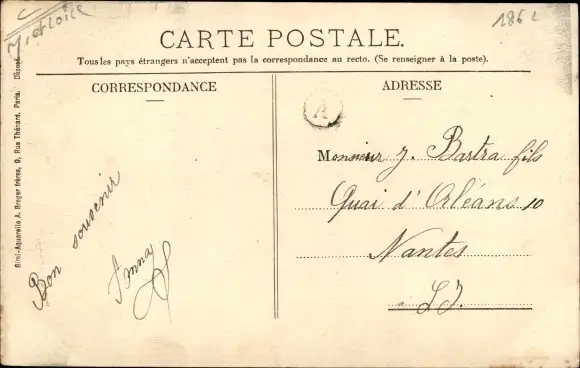 M et Loire
186
CARTE POSTALE.
Tous les pays étrangers n'acceptent pas la correspondance au recto. (Se renseigner à la poste).
CORRESPONDANCE
ADRESSE
A
Simi-Aquarelle A. Breger frères, 9, Rue Thénard, Paris. Déposé
Bon souvenir
Anna
Monsieur J. Bartra fils
Quai d'Orléans 10
Nantes
L.I.